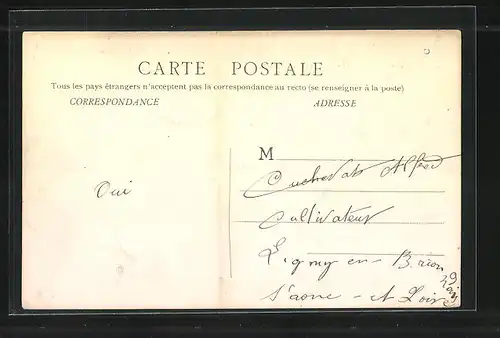 CARTE POSTALE
Tous les pays étrangers n'acceptent pas la correspondance au recto (se renseigner à la poste)
CORRESPONDANCE
ADRESSE
Oui
M
Cucherat Alfred
Cultivateur
Ligny en Brion
nais
Saone et Loire